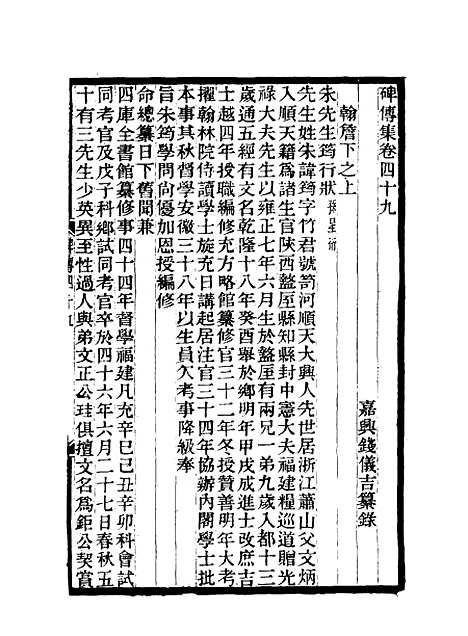 碑傳集卷四十九
嘉興錢儀吉纂錄
翰詹下之上
朱先生筠行狀 孫星衍
先生姓朱諱筠字竹君號笥河順天大興人先世居浙江蕭山父文炳
入順天籍爲諸生官陝西盩厔縣知縣封中憲大夫福建糧巡道贈光
祿大夫先生以雍正七年六月生於盩厔有兩兄一弟九歲入都十三
歲通五經有文名乾隆十八年癸酉舉於鄉明年甲戌成進士改庶吉
士越四年授職編修充方略館纂修官三十二年冬授贊善明年大考
擢翰林院侍讀學士旋充日講起居注官三十四年協辦內閣學士批
本事其秋督學安徽三十八年以生員欠考事降級奉
旨朱筠學問尚優加恩授編修
命總纂日下舊聞兼
四庫全書館纂修事四十四年督學福建凡充辛巳己丑辛卯科會試
同考官及戊子科鄉試同考官卒於四十六年六月二十七日春秋五
十有三先生少英異至性過人與弟文正公珪俱擅文名爲鉅公契賞